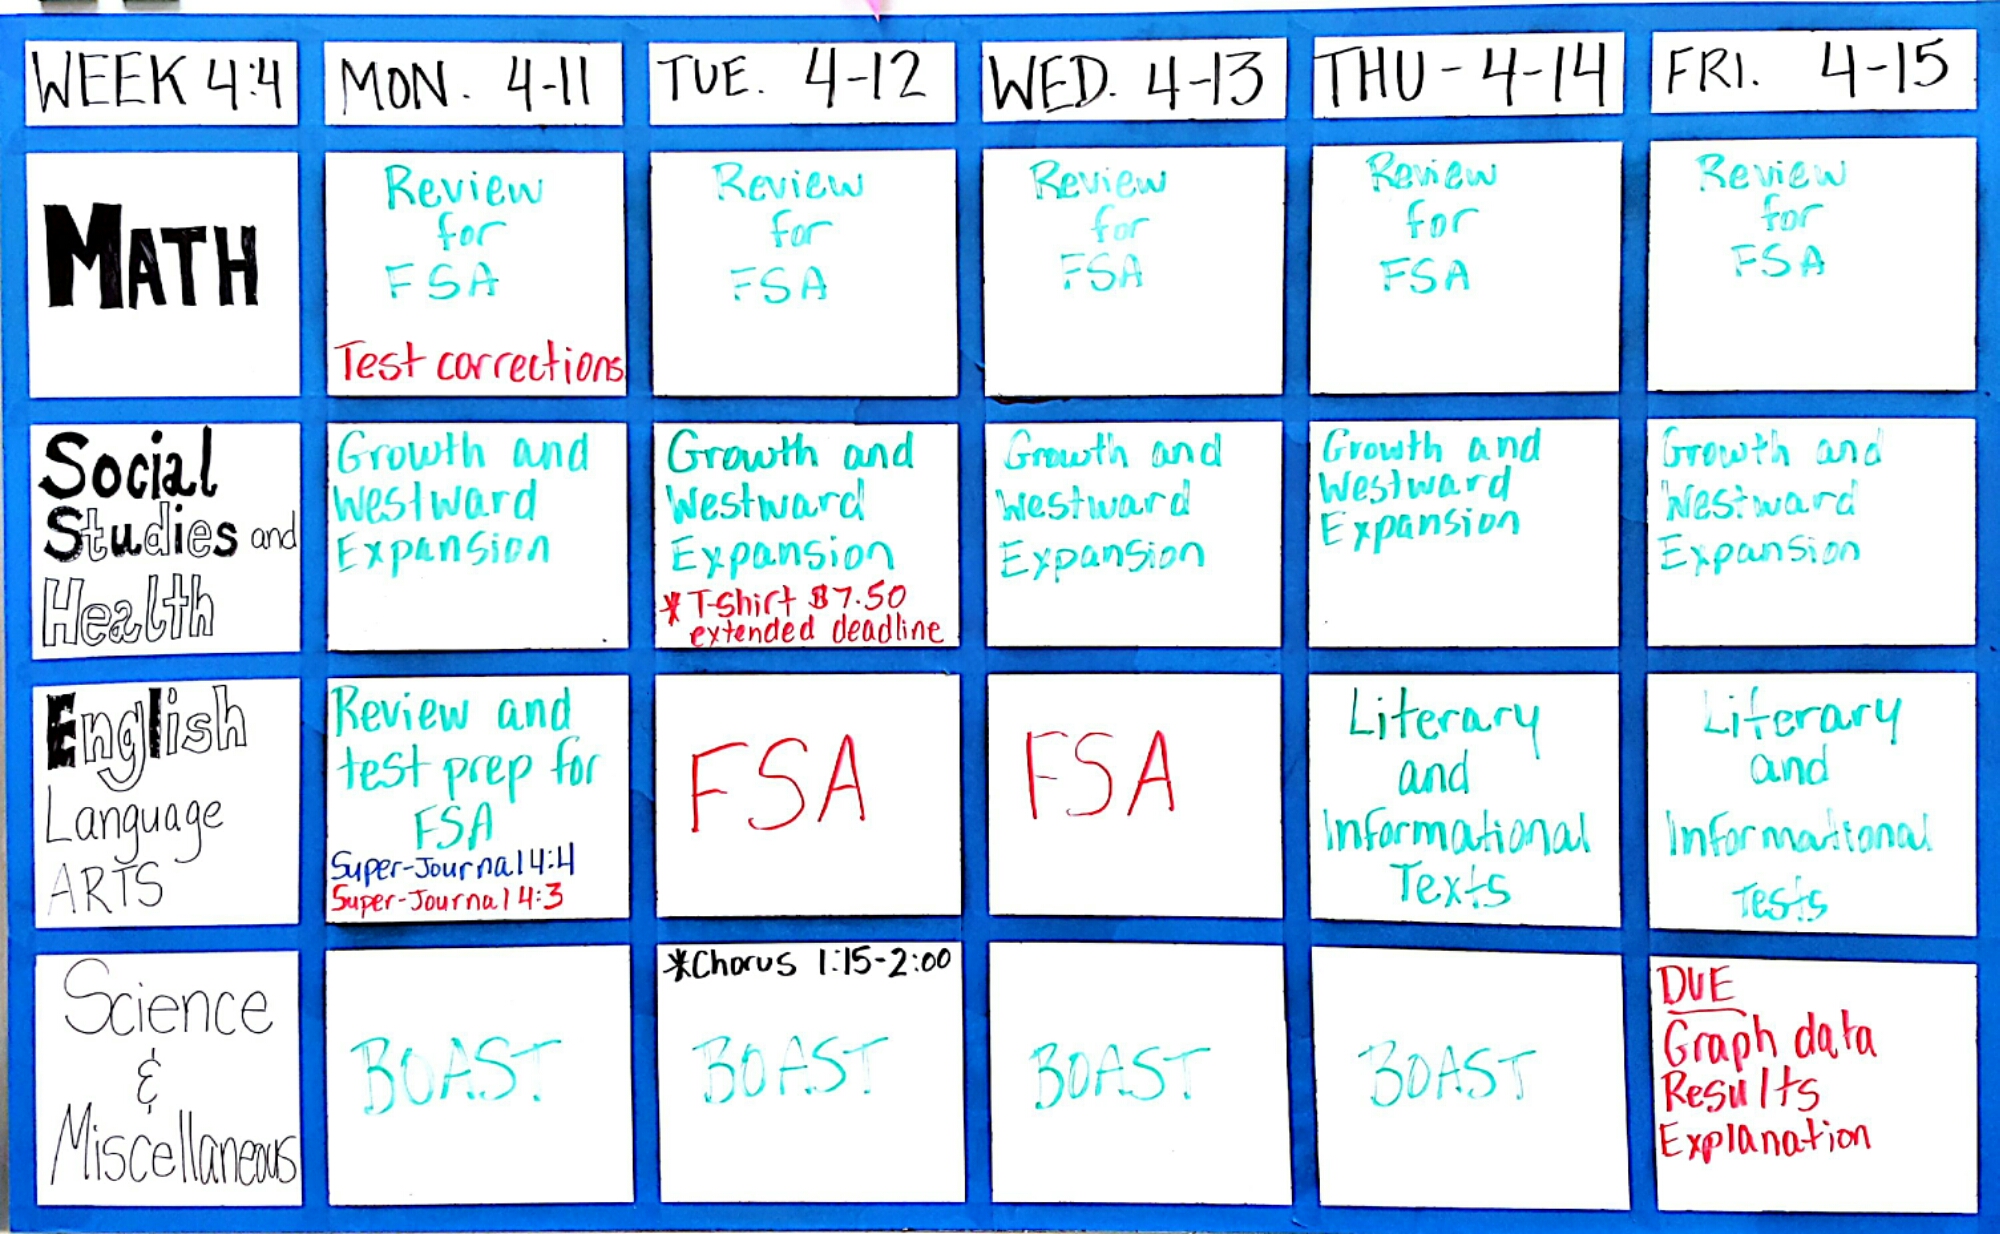 WEEK 4:4
MON. 4-11
TUE. 4-12
WED. 4-13
THU - 4-14
FRI. 4-15
MATH
Review
for
FSA
Test corrections
Review
for
FSA
Review
for
FSA
Review
for
FSA
Review
for
FSA
Social
Studies and
Health
Growth and
Westward
Expansion
Growth and
Westward
Expansion
*T-Shirt $7.50
extended deadline
Growth and
Westward
Expansion
Growth and
Westward
Expansion
Growth and
Westward
Expansion
English
Language
ARTS
Review and
test prep for
FSA
Super-Journal 4:4
Super-Journal 4:3
FSA
FSA
Literary
and
Informational
Texts
Literary
and
Informational
Tests
Science
&
Miscellaneous
BOAST
*Chorus 1:15-2:00
BOAST
BOAST
BOAST
DUE
Graph data
Results
Explanation